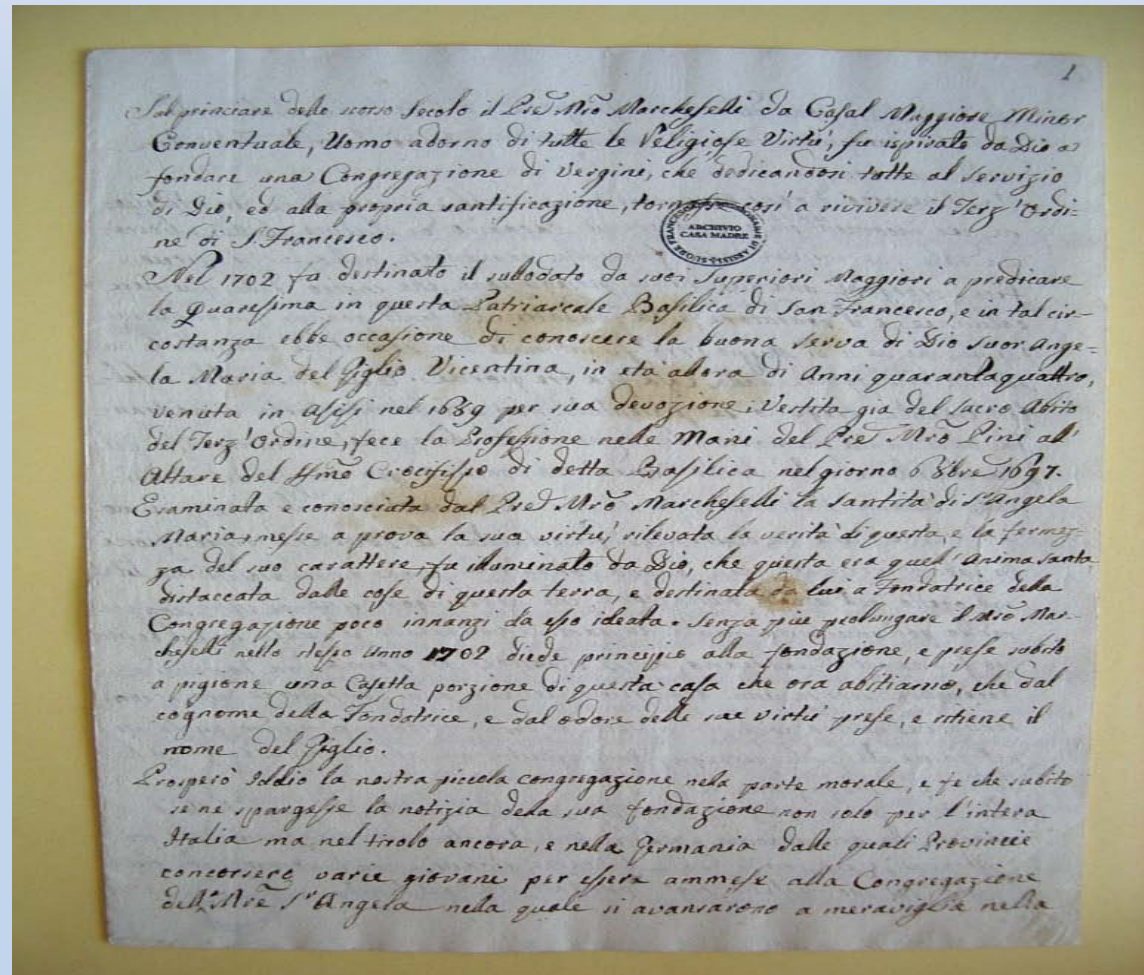 1
Sul princiare dello scorso Secolo il Pre Mro Marcheselli da Casal Maggiore Minor
Conventuale, Uomo adorno di tutte le Religiose Virtù, fu ispirato da Dio a
fondare una Congregazione di Vergini, che dedicandosi tutte al servizio
di Dio, ed alla propria santificazione, tornasse così a rivivere il Terz'Ordi-
ne di S. Francesco.
ARCHIVIO
CASA MADRE
Nel 1702 fu destinato il sullodato da suoi Superiori Maggiori a predicare
la Quaresima in questa Patriarcale Basilica di San Francesco, e in tal cir-
costanza ebbe occasione di conoscere la buona Serva di Dio Suor Ange=
la Maria del Giglio Vicentina, in età allora di Anni quarantaquattro,
venuta in Asisi nel 1689 per sua devozione; Vestita già del Sacro Abito
del Terz'Ordine, fece la Professione nelle Mani del Pre Mro Pini all'
Altare del Smo Crocifisso di detta Basilica nel giorno 6 8bre 1697.
Esaminata e conosciuta dal Pre Mro Marcheselli la Santità di Sr Angela
Maria, messe a prova la sua virtù, rilevata la verità di questa, e la fermez-
za del suo carattere, fu illuminato da Dio, che questa era quell'Anima santa
distaccata dalle cose di questa terra, e destinata da lui a Fondatrice della
Congregazione poco innanzi da esso ideata. Senza più prolungare il Mro Mar-
cheselli nello stesso Anno 1702 diede principio alla fondazione, e prese subito
a pigione una Casetta porzione di questa casa che ora abitiamo, che dal
cognome della Fondatrice, e dal odore delle sue virtù prese, e ritiene il
nome del Giglio.
Prosperò Iddio la nostra piccola congregazione nella parte morale, e fe che subito
se ne spargesse la notizia della sua fondazione non solo per l'intera
Italia ma nel tirolo ancora, e nella Germania dalle quali Provincie
concorsero varie giovani per essere ammese alla Congregazione
della Mre Sr Angela nella quale si avansarono a meraviglia nella